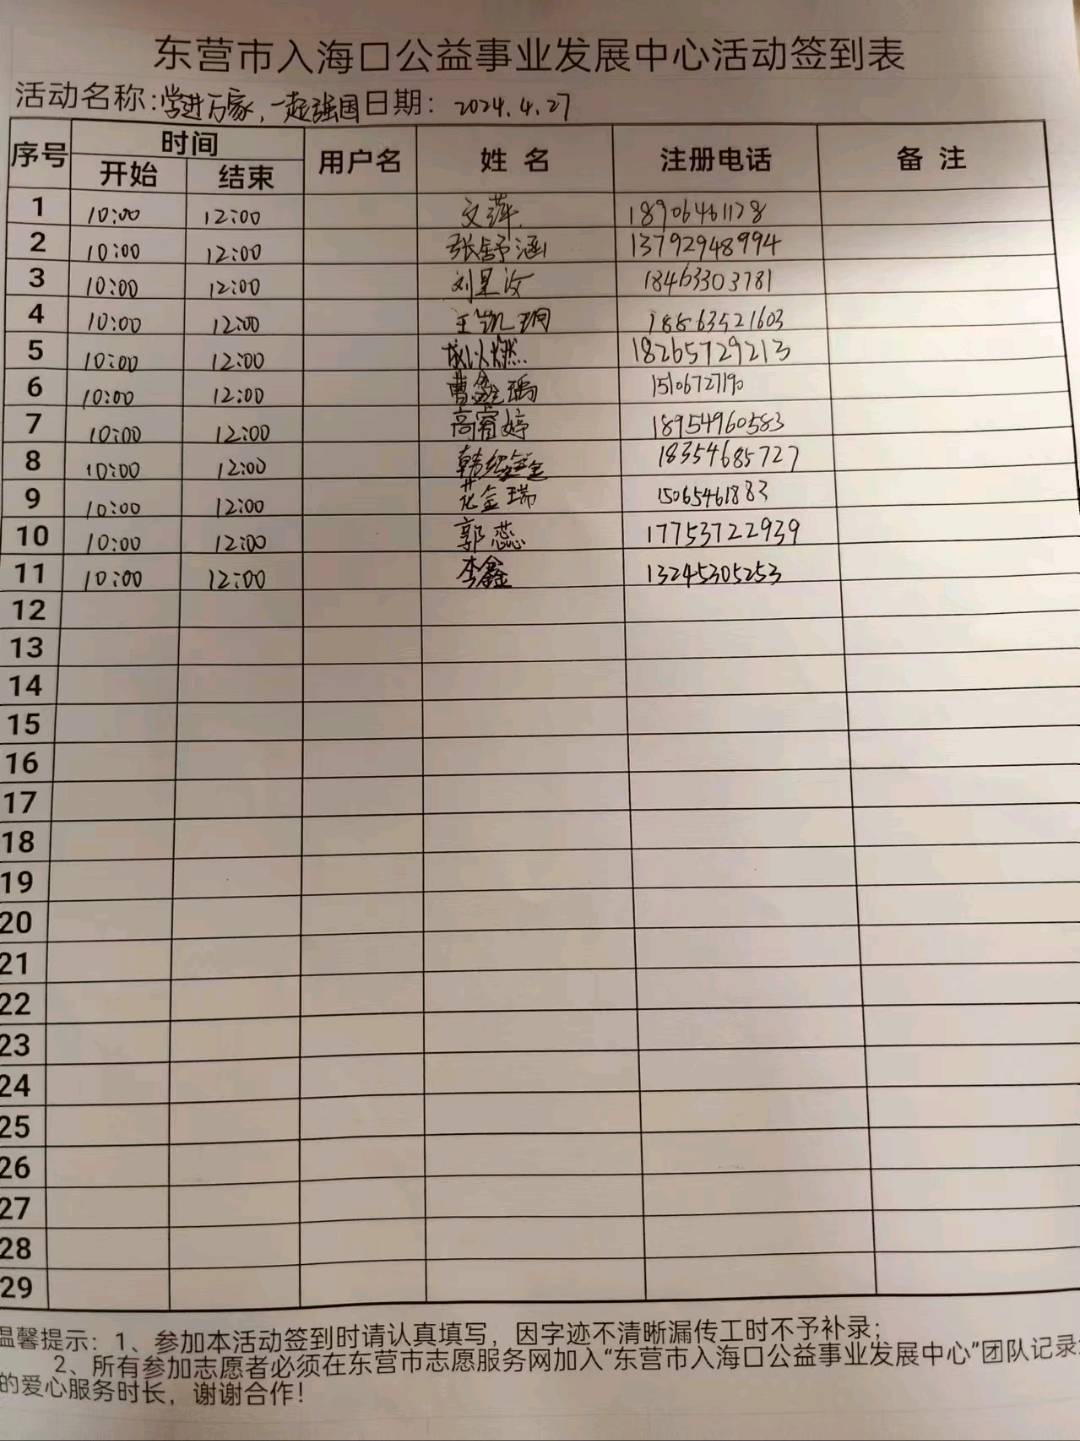 东营市入海口公益事业发展中心活动签到表
活动名称:学进万家,一起强国日期: 2024.4.27
序号 时间 用户名 姓名 注册电话 备注
开始 结束
1 10:00 12:00 文萍 18906461128
2 10:00 12:00 张舒涵 13792948994
3 10:00 12:00 刘星汝 18463303781
4 10:00 12:00 王凯珂 18863521603
5 10:00 12:00 18265729213
6 10:00 12:00 曹 瑀 15106727190
7 10:00 12:00 高宥婷 18954960583
8 10:00 12:00 韩 鑫 18354685727
9 10:00 12:00 范金瑞 15065461883
10 10:00 12:00 郭蕊 17753722939
11 10:00 12:00 李鑫 13245305253
12
13
14
15
16
17
18
19
20
21
22
23
24
25
26
27
28
29
温馨提示:1、参加本活动签到时请认真填写,因字迹不清晰漏传工时不予补录;
2、所有参加志愿者必须在东营市志愿服务网加入“东营市入海口公益事业发展中心”团队记录
的爱心服务时长,谢谢合作!